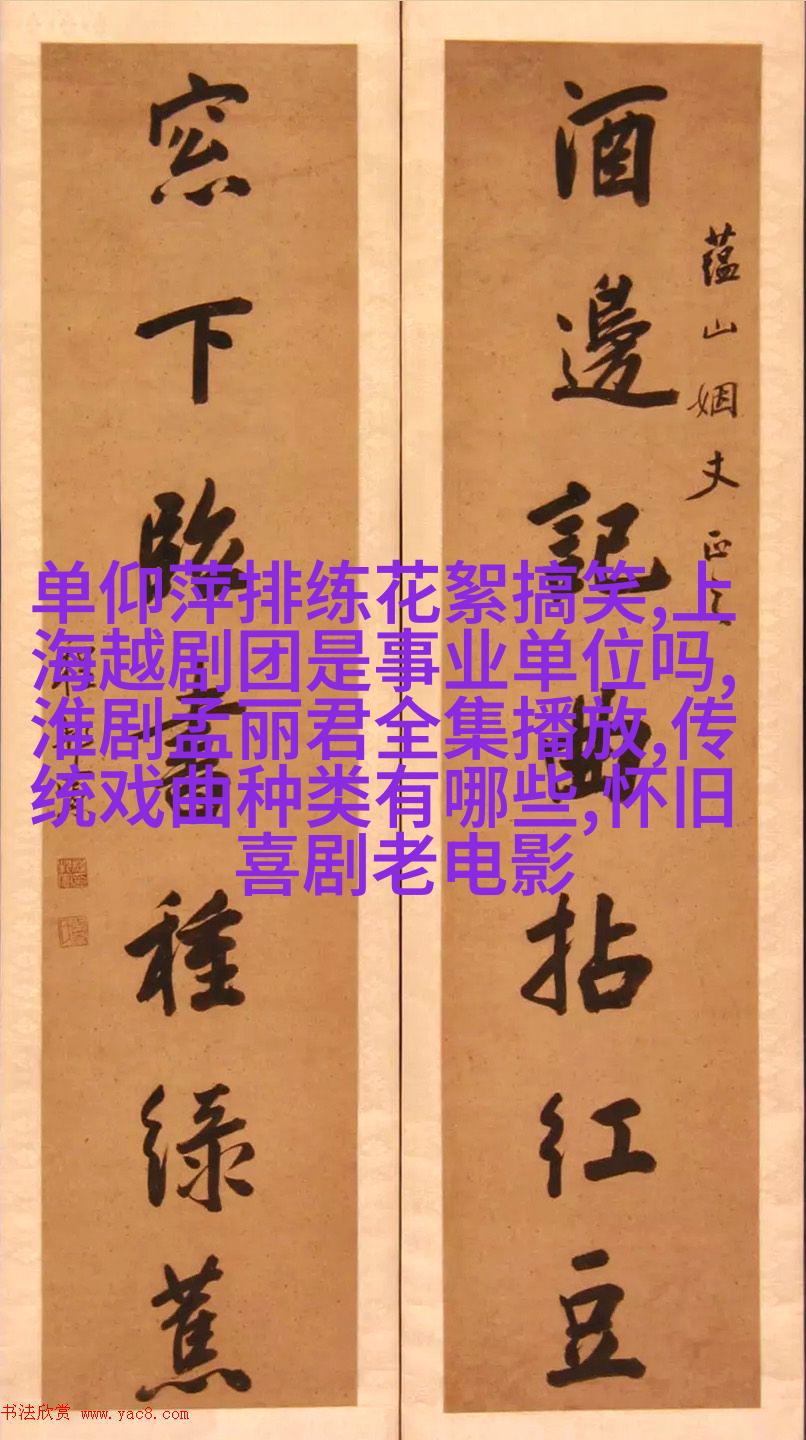 蘊山姻丈正之
酒邊記曲拈紅豆
窓下臨書種緑蕉
单仰萍排练花絮搞笑,上
海越剧团是事业单位吗,
淮剧孟丽君全集播放,传
统戏曲种类有哪些,怀旧
喜剧老电影
书法欣赏 www.yac8.com